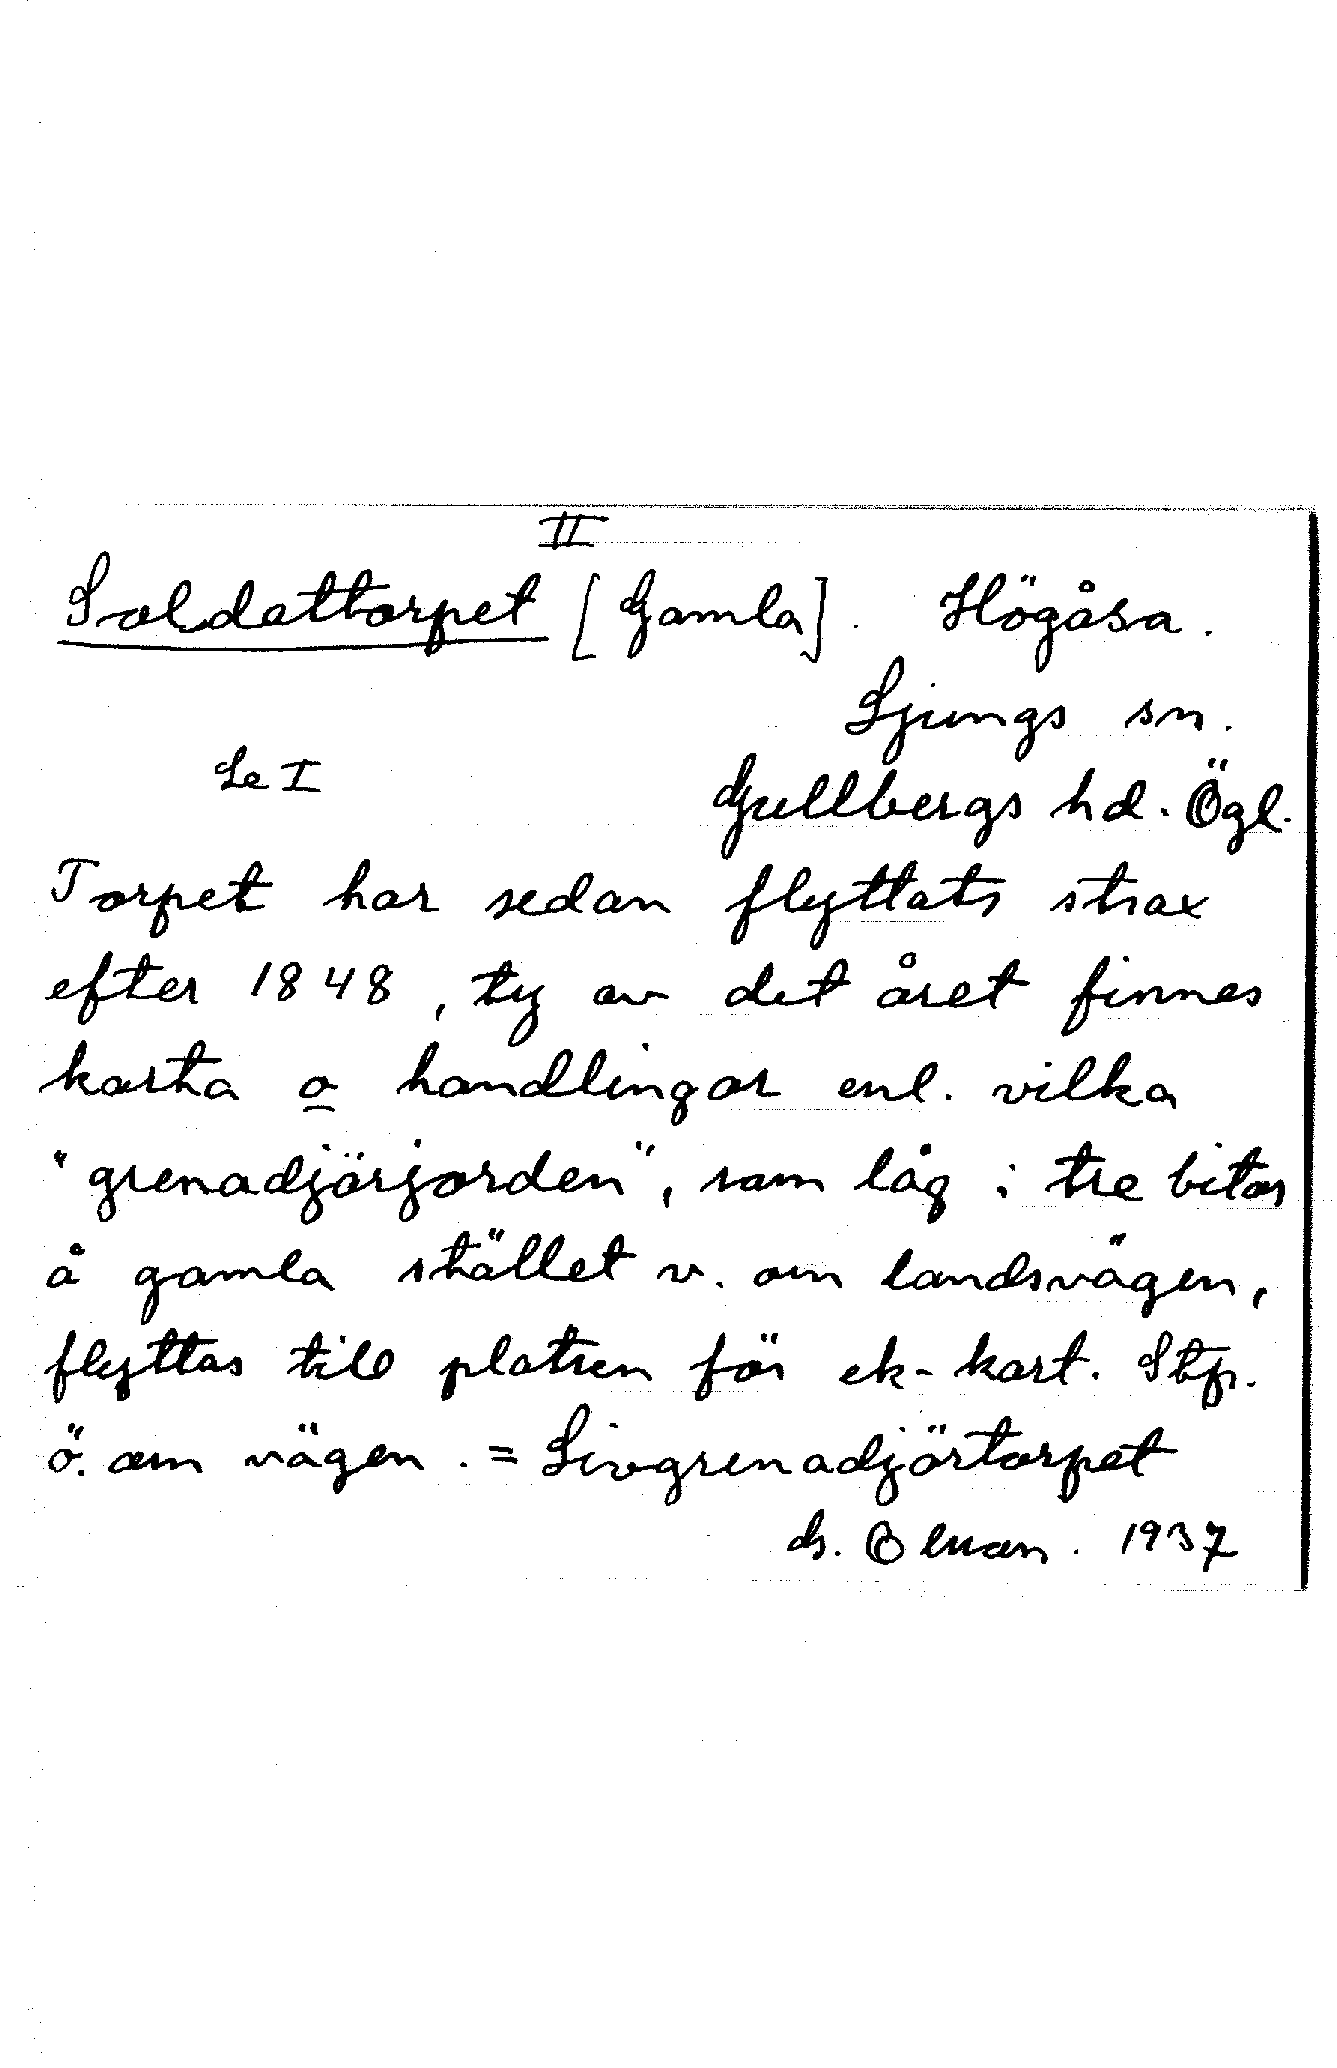 II
Soldattorpet [Gamla]. Högåsa.
Ljungs sn.
Se I
Gullbergs hd. Ögl.
Torpet har sedan flyttats strax
efter 1848, ty av det året finnes
karta o handlingar enl. vilka
"grenadjärjorden", som låg i tre bitar
å gamla stället v. om landsvägen,
flyttas till platsen för ek-kart. Stp.
ö. om vägen. = Livgrenadjörtorpet
1937